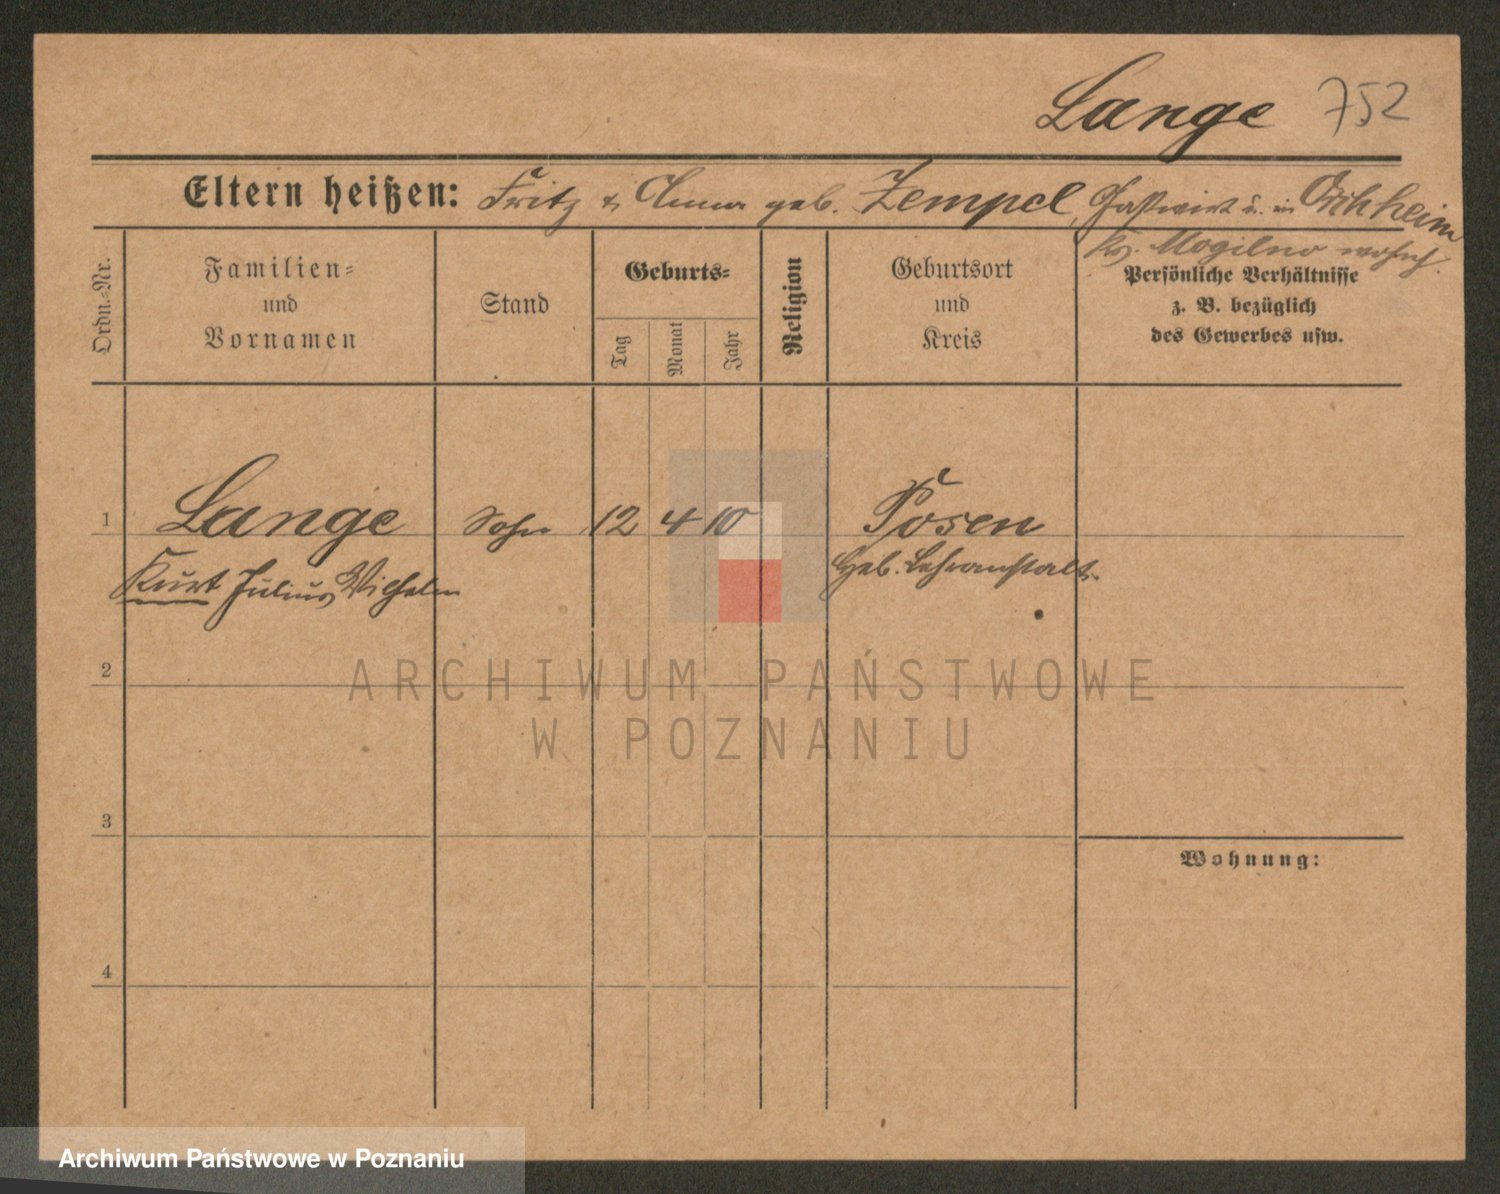 Lange 752
Eltern heißen: Fritz & Anna geb. Zempel, Gastwirt u. in
Kr. Mogilno wohnh.
Ordn.-Nr.
Familien-
und
Vornamen
Stand
Geburts-
Tag
Monat
Jahr
Religion
Geburtsort
und
Kreis
Persönliche Verhältnisse
z. B. bezüglich
des Gewerbes usw.
1 Lange Sohn 12 4 10 Posen
Kurt Julius Wilhelm Heb. Lehranstalt.
2
3
4
Wohnung:
ARCHIWUM PAŃSTWOWE
W POZNANIU
Archiwum Państwowe w Poznaniu